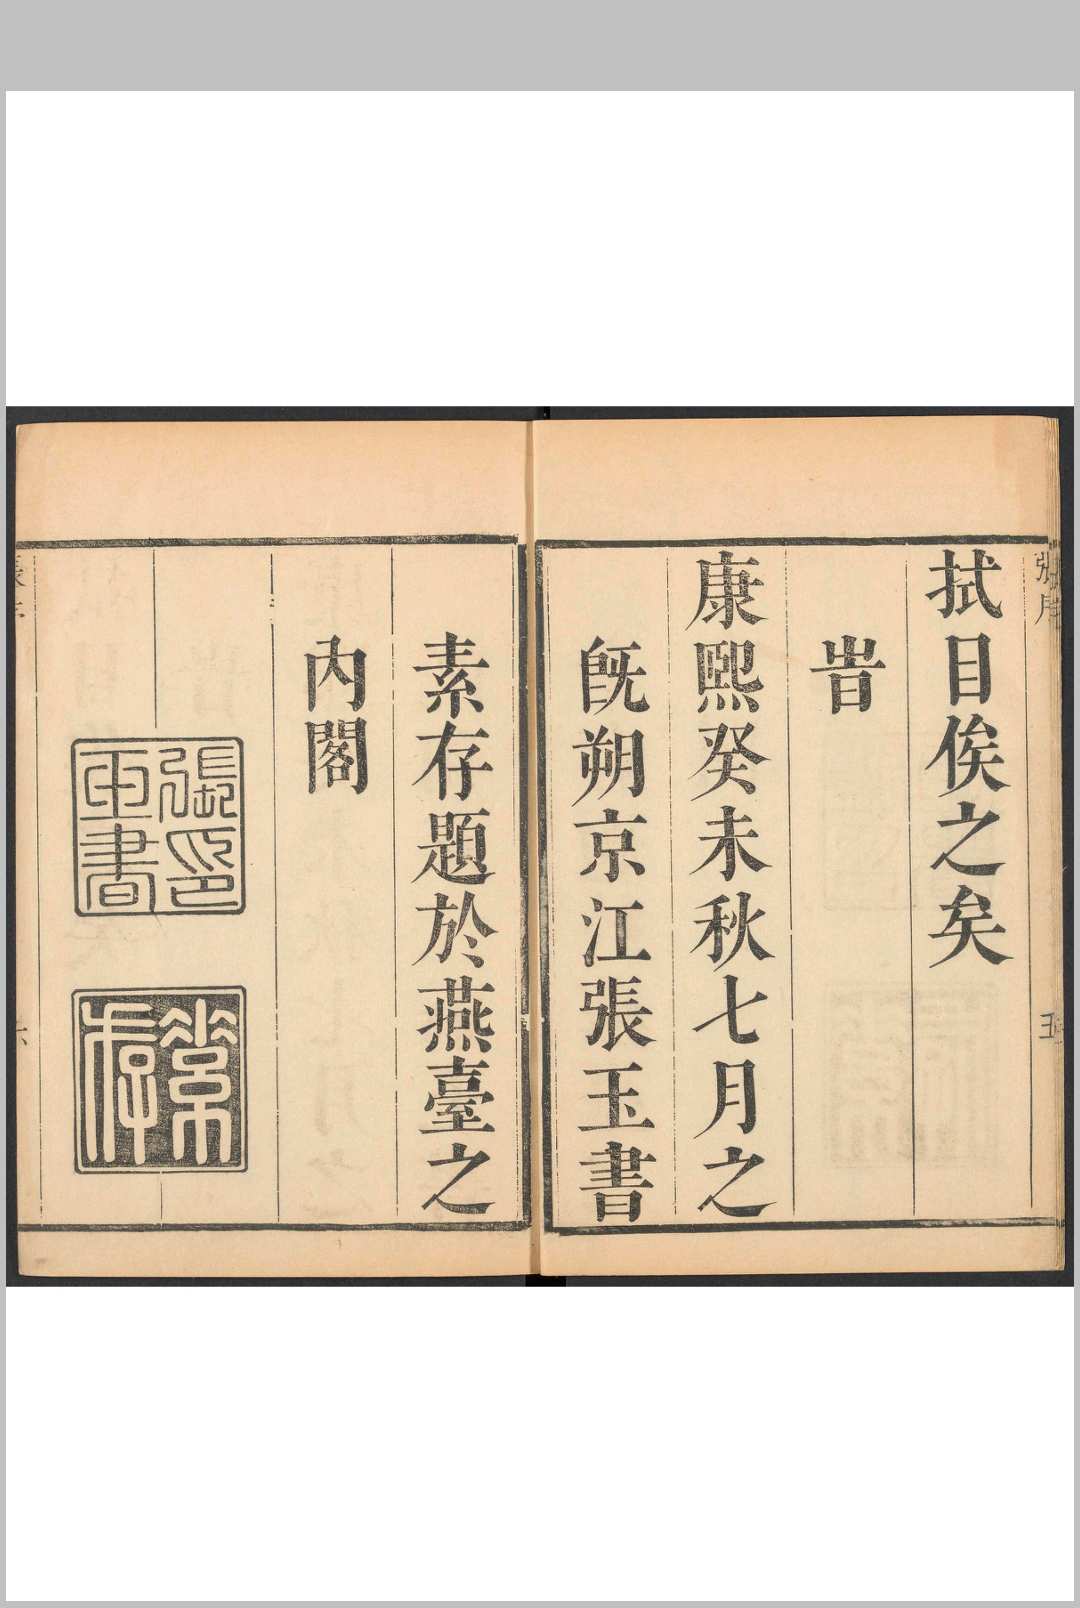 張序
五
拭目俟之矣
旹
康熙癸未秋七月之
旣朔京江張玉書
素存題於燕臺之
內閣
張印玉書
素存
六